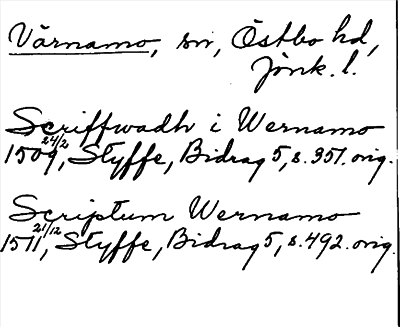 Värnamo, sn, Östbo hd,
Jönk. l.
Scriffwadh i Wernamo
1509 24/2, Styffe, Bidrag 5, s. 351. orig.
Scriptum Wernamo
1511 21/12, Styffe, Bidrag 5, s. 492. orig.